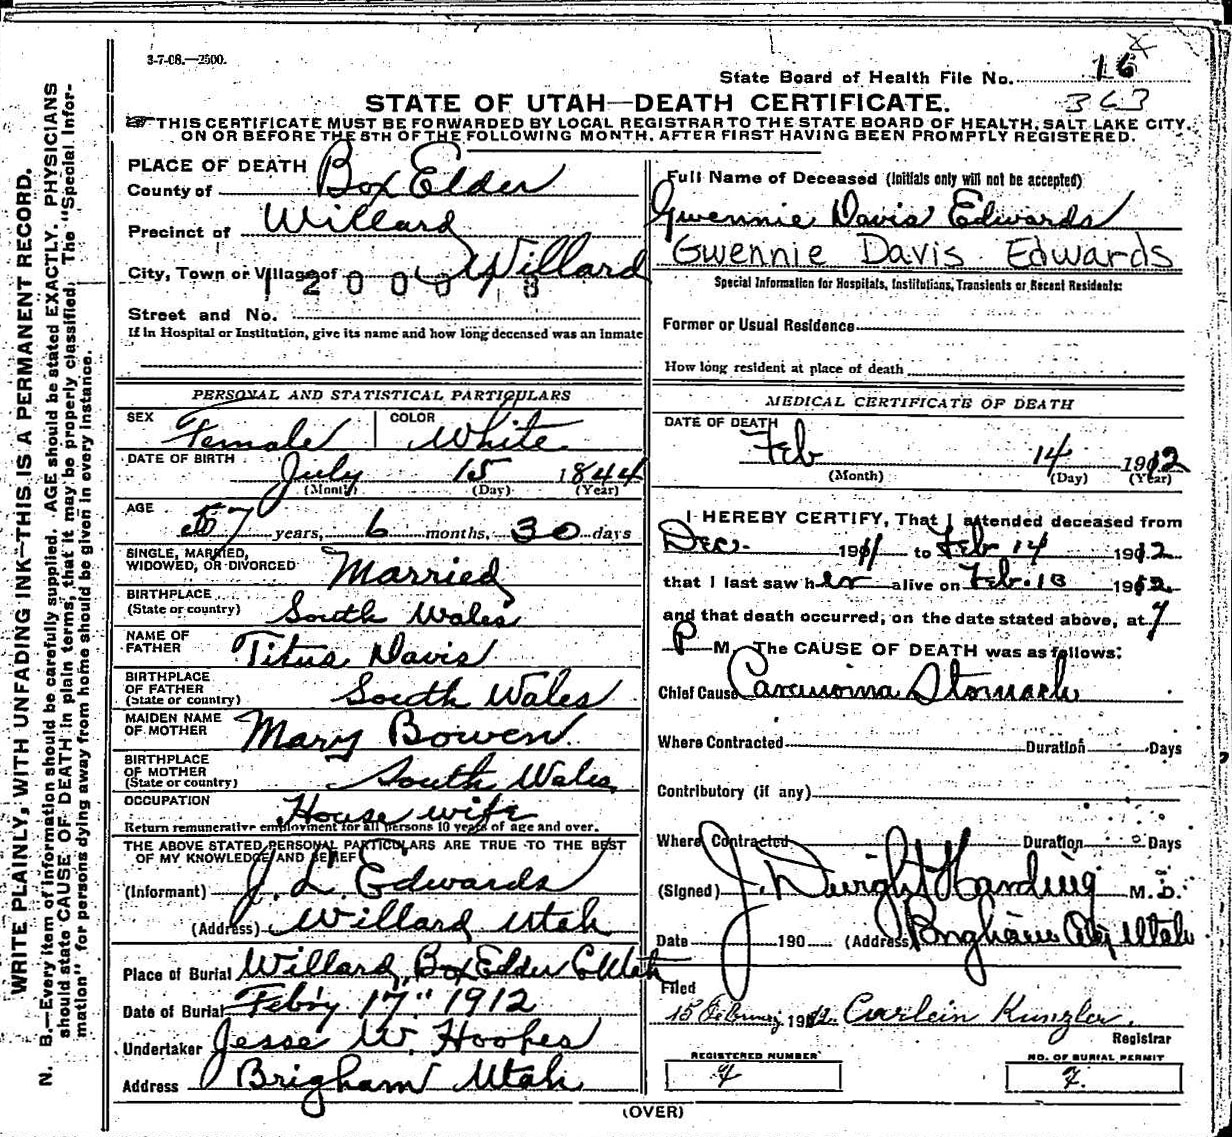 3-7-08.—2500.
State Board of Health File No. 16
363
STATE OF UTAH—DEATH CERTIFICATE.
THIS CERTIFICATE MUST BE FORWARDED BY LOCAL REGISTRAR TO THE STATE BOARD OF HEALTH, SALT LAKE CITY,
ON OR BEFORE THE 5TH OF THE FOLLOWING MONTH, AFTER FIRST HAVING BEEN PROMPTLY REGISTERED.
WRITE PLAINLY, WITH UNFADING INK—THIS IS A PERMANENT RECORD.
N. B.—Every item of information should be carefully supplied. AGE should be stated EXACTLY. PHYSICIANS
should state CAUSE OF DEATH in plain terms, that it may be properly classified. The "Special Infor-
mation" for persons dying away from home should be given in every instance.
PLACE OF DEATH
County of Box Elder
Precinct of Willard
City, Town or Village of Willard
Street and No.
If in Hospital or Institution, give its name and how long deceased was an inmate
Full Name of Deceased (Initials only will not be accepted)
Gwennie Davis Edwards
Gwennie Davis Edwards
Special Information for Hospitals, Institutions, Transients or Recent Residents:
Former or Usual Residence
How long resident at place of death
PERSONAL AND STATISTICAL PARTICULARS
SEX Female COLOR White
DATE OF BIRTH July 15 1844
(Month) (Day) (Year)
AGE 67 years, 6 months, 30 days
SINGLE, MARRIED,
WIDOWED, OR DIVORCED Married
BIRTHPLACE
(State or country) South Wales
NAME OF
FATHER Titus Davis
BIRTHPLACE
OF FATHER
(State or country) South Wales
MAIDEN NAME
OF MOTHER Mary Bowen
BIRTHPLACE
OF MOTHER
(State or country) South Wales
OCCUPATION House wife
Return remunerative employment for all persons 10 years of age and over.
THE ABOVE STATED PERSONAL PARTICULARS ARE TRUE TO THE BEST
OF MY KNOWLEDGE AND BELIEF
(Informant) J. L. Edwards
(Address) Willard Utah
Place of Burial Willard, Box Elder Co Utah
Date of Burial Feb'ry 17" 1912
Undertaker Jesse W. Hoopes
Address Brigham Utah
MEDICAL CERTIFICATE OF DEATH
DATE OF DEATH
Feb 14 1912
(Month) (Day) (Year)
I HEREBY CERTIFY, That I attended deceased from
Dec. 1911 to Feb 14 1912
that I last saw her alive on Feb. 13 1912
and that death occurred, on the date stated above, at 7
P M. The CAUSE OF DEATH was as follows:
Chief Cause Carcinoma Stomach
Where Contracted Duration Days
Contributory (if any)
Where Contracted Duration Days
(Signed) J. Dwight Harding M. D.
Date 190 (Address) Brigham City Utah
Filed
15 February 1912. Carlein Kunzler.
Registrar
REGISTERED NUMBER
NO. OF BURIAL PERMIT
(OVER)